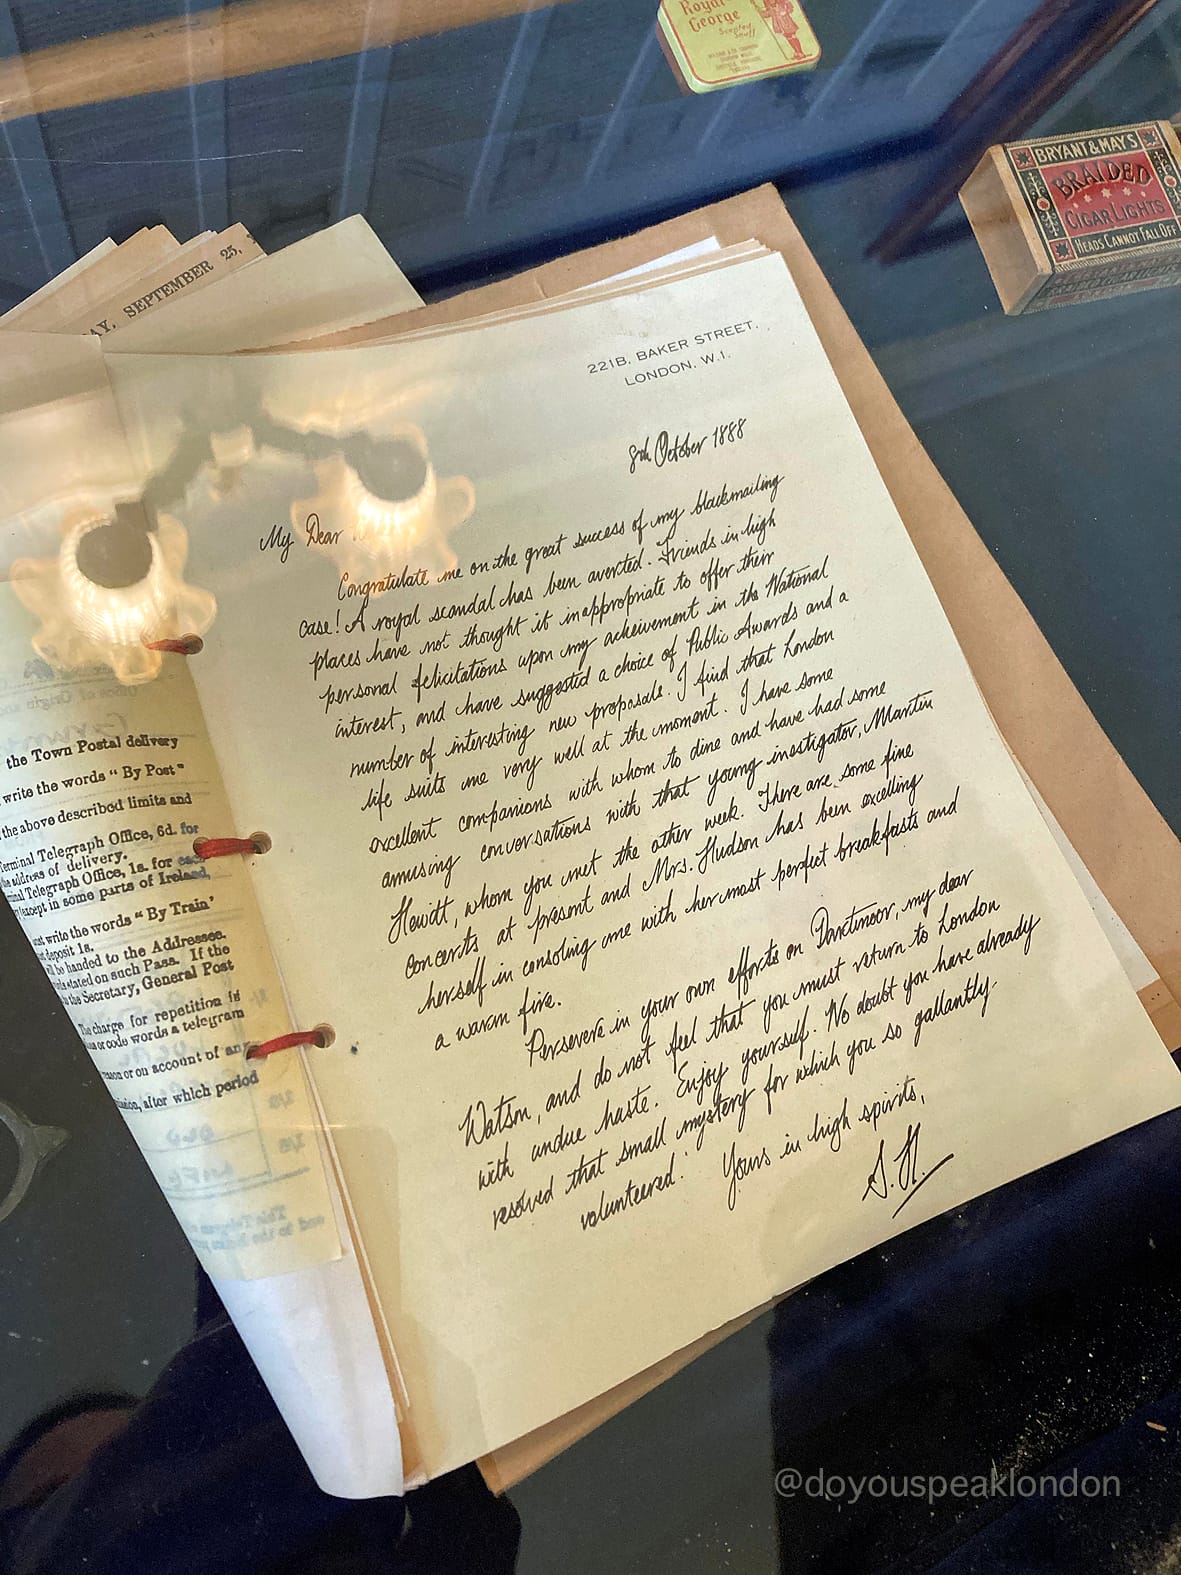 Royal
George
Scented
Snuff
BRYANT & MAY'S
BRAIDED
CIGAR LIGHTS
HEADS CANNOT FALL OFF
AY, SEPTEMBER 25,
221B, BAKER STREET,
LONDON, W.1.
8th October 1888
My Dear
Congratulate me on the great success of my blackmailing
case! A royal scandal has been averted. Friends in high
places have not thought it inappropriate to offer their
personal felicitations upon my acheivement in the National
interest, and have suggested a choice of Public Awards and a
number of interesting new proposals. I find that London
life suits me very well at the moment. I have some
excellent companions with whom to dine and have had some
amusing conversations with that young investigator, Martin
Hewitt, whom you met the other week. There are some fine
concerts at present and Mrs. Hudson has been excelling
herself in consoling me with her most perfect breakfasts and
a warm fire.
Persevere in your own efforts on Dartmoor, my dear
Watson, and do not feel that you must return to London
with undue haste. Enjoy yourself. No doubt you have already
resolved that small mystery for which you so gallantly
volunteered.
Yours in high spirits,
S. H.
the Town Postal delivery
write the words "By Post"
the above described limits and
Terminal Telegraph Office, 6d. for
address of delivery.
Telegraph Office, 1s. for each
except in some parts of Ireland,
write the words "By Train"
deposit 1s.
be handed to the Addressee.
stated on such Pass. If the
the Secretary, General Post
charge for repetition is
or code words a telegram
or on account of any
after which period
@doyouspeaklondon